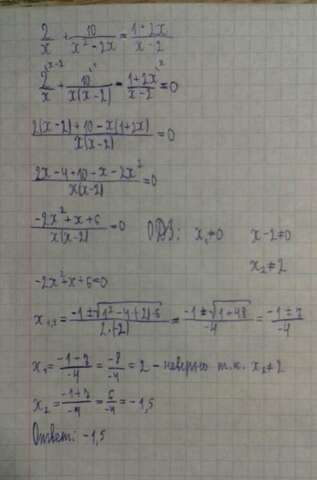 2/x + 10/(x² - 2x) = (1 + 2x)/(x - 2)
2/x + 10/(x(x-2)) - (1+2x)/(x-2) = 0
(2(x-2) + 10 - x(1+2x))/(x(x-2)) = 0
(2x - 4 + 10 - x - 2x²)/(x(x-2)) = 0
(-2x² + x + 6)/(x(x-2)) = 0 ОДЗ: x₁≠0 x-2≠0
x₂≠2
-2x² + x + 6 = 0
x₁,₂ = (-1 ± √(1² - 4·(-2)·6))/(2·(-2)) = (-1 ± √(1+48))/(-4) = (-1 ± 7)/(-4)
x₁ = (-1-7)/(-4) = (-8)/(-4) = 2 - неверно т.к. x₂≠2
x₂ = (-1+7)/(-4) = 6/(-4) = -1,5
Ответ: -1,5